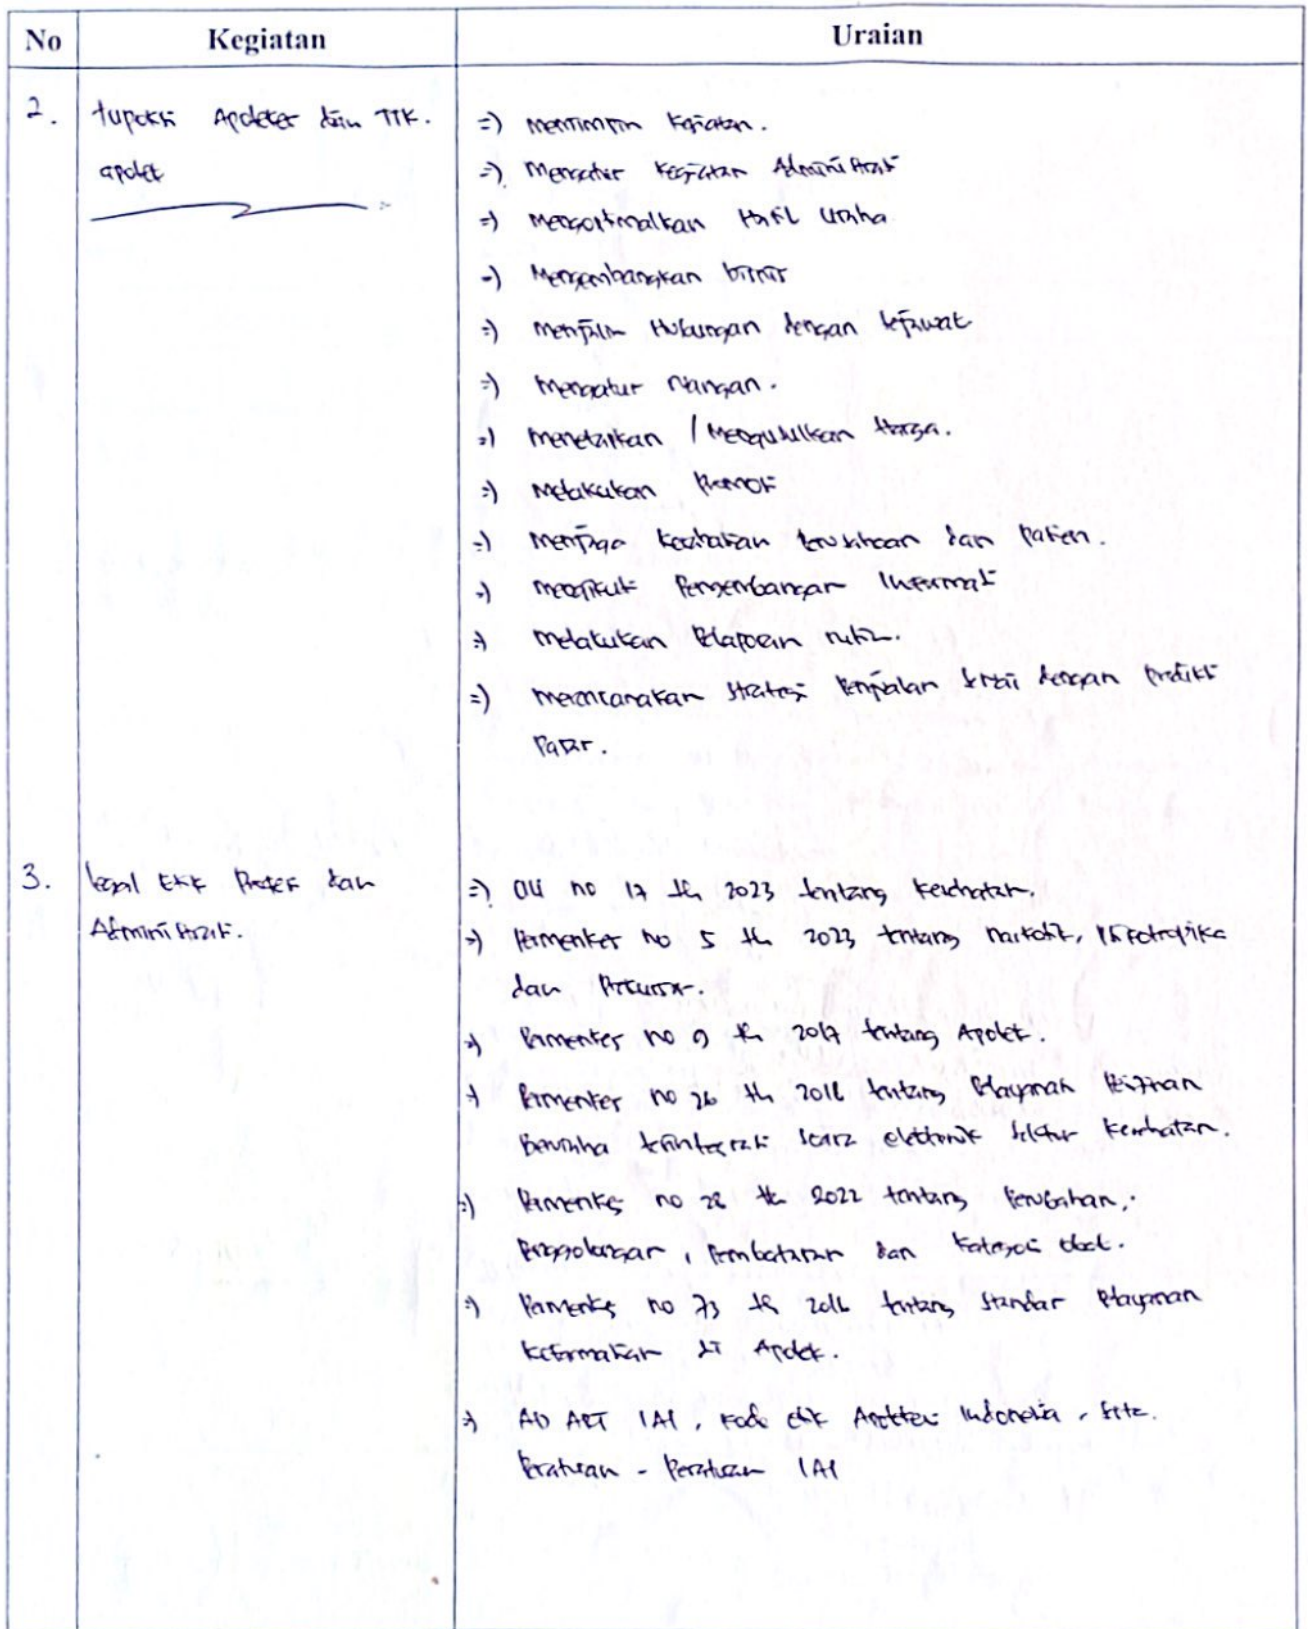 No Kegiatan Uraian
2. tupoksi Apoteker dan TTK.
apotek
=) memimpin kegiatan.
=) Mengatur kegiatan Administrasi
=) Mengoptimalkan Hasil Usaha
=) Mengembangkan bisnis
=) menjalin Hubungan dengan sejawat
=) Mengatur ruangan.
=) menetapkan / Mengusulkan Harga.
=) Melakukan Promosi
=) menjaga kesehatan perusahaan dan pasien.
=) mengikuti Pengembangan Informasi
=) melakukan Pelaporan rutin.
=) merencanakan strategi penjualan sesuai dengan prediksi
Pasar.
3. legal Etik Profesi dan
Administrasi.
=) UU no 17 th 2023 tentang kesehatan.
=) Permenkes no 5 th 2023 tentang narkotik, Psikotropika
dan Prekursor.
=) Permenkes no 9 th 2017 tentang Apotek.
=) Permenkes no 26 th 2018 tentang Pelayanan Perizinan
Berusaha terintegrasi secara elektronik sektor kesehatan.
=) Permenkes no 28 th 2022 tentang Perubahan,
Penggolongan, Pembatasan dan kategori obat.
=) Permenkes no 73 th 2016 tentang standar Pelayanan
kefarmasian di Apotek.
=) AD ART IAI, kode etik Apoteker Indonesia,
Peraturan - Peraturan IAI